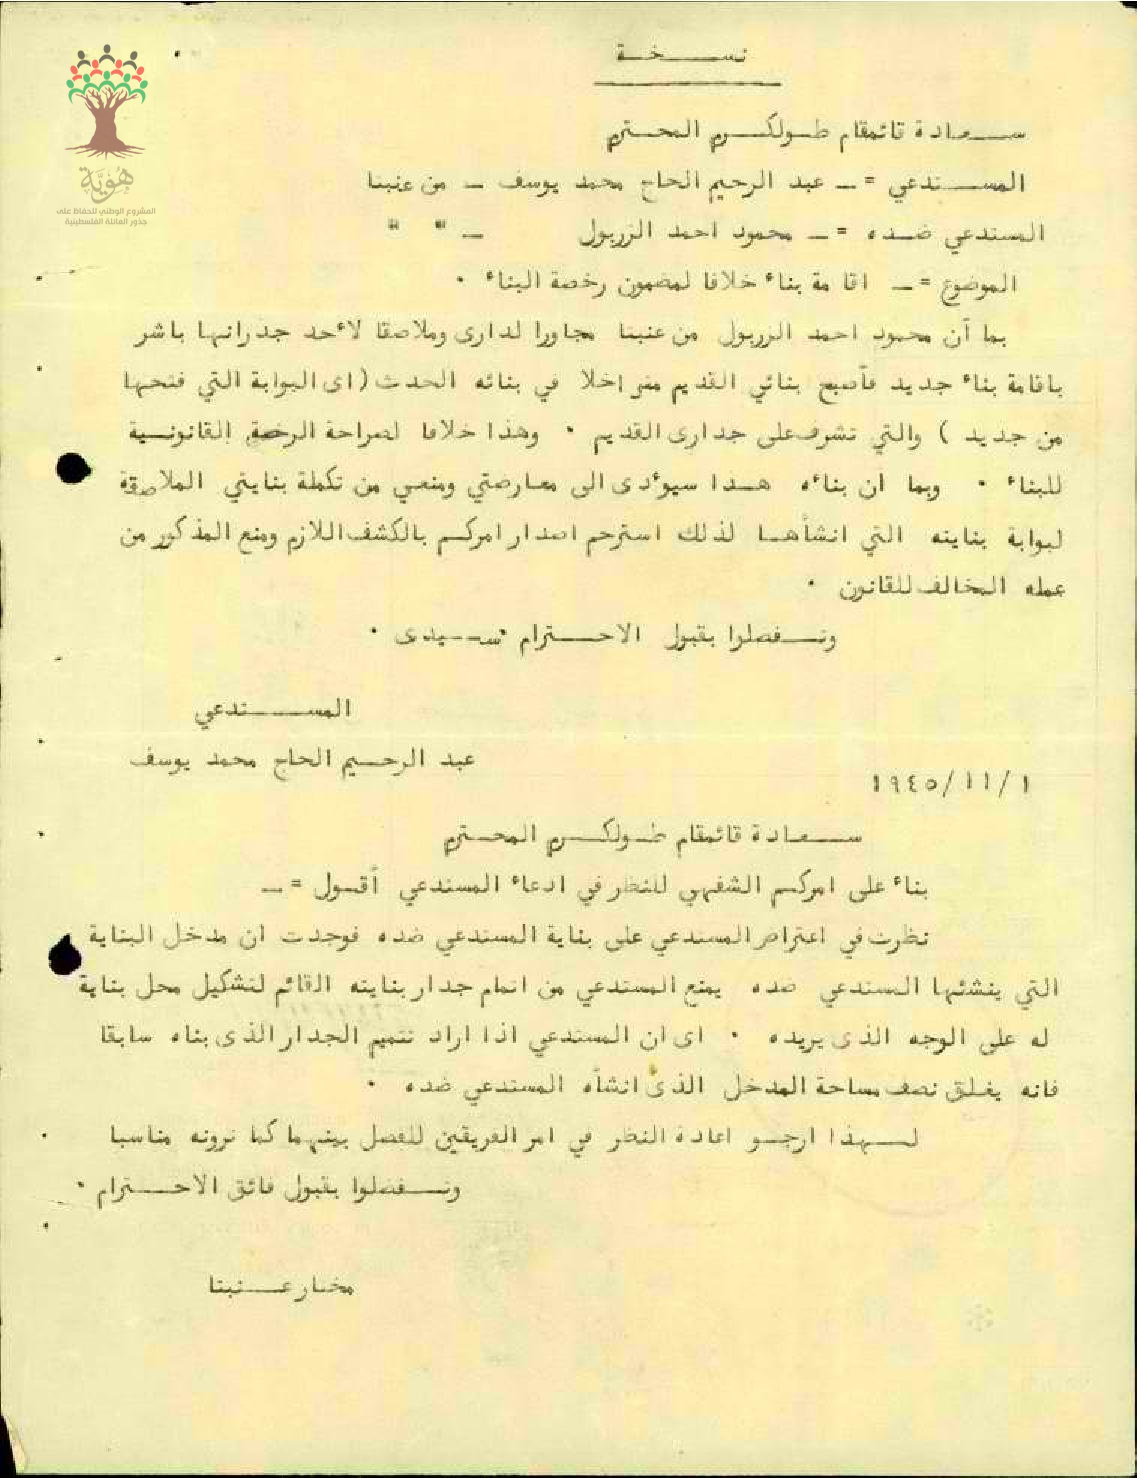 نسخة
سعادة قائمقام طولكرم المحترم
المستدعي = ــ عبد الرحيم الحاج محمد يوسف ــ من عنبتا
المستدعي ضده = ــ محمود احمد الزربول ــ " "
الموضوع = ــ اقامة بناء خلافا لمضمون رخصة البناء ٠
بما أن محمود احمد الزربول من عنبتا مجاورا لدارى وملاصقا لأحد جدرانها باشر
باقامة بناء جديد فأصبح بنائي القديم متراخلا في بنائه الحدث (اى البوابة التي فتحها
من جديد ) والتي تشرف على جدارى القديم ٠ وهذا خلافا لصراحة الرخصة القانونية
للبناء ٠ وبما ان بنائه هذا سيؤدى الى معارضتي ومنعي من تكملة بنايتي الملاصقة
لبوابة بنايته التي انشأها لذلك استرحم اصدار امركم بالكشف اللازم ومنع المذكور من
عمله المخالف للقانون ٠
وتفضلوا بقبول الاحترام سيدى ٠
المستدعي
عبد الرحيم الحاج محمد يوسف
١٩٤٥/١١/١
سعادة قائمقام طولكرم المحترم
بناء على امركم الشفهي للنظر في ادعاء المستدعي أقول = ــ
نظرت في اعتراض المستدعي على بناية المستدعي ضده فوجدت ان مدخل البناية
التي ينشئها المستدعي ضده يمنع المستدعي من اتمام جدار بنايته القائم لتشكيل محل بناية
له على الوجه الذى يريده ٠ اى ان المستدعي اذا اراد تتميم الجدار الذى بناه سابقا
فانه يغلق نصف مساحة المدخل الذى انشأه المستدعي ضده ٠
لهذا ارجو اعادة النظر في امر الفريقين للفصل بينهما كما ترونه مناسبا
وتفضلوا بقبول فائق الاحترام ٠
مختار عنبتا
هُويَّة
المشروع الوطني للحفاظ على
جذور العائلة الفلسطينية